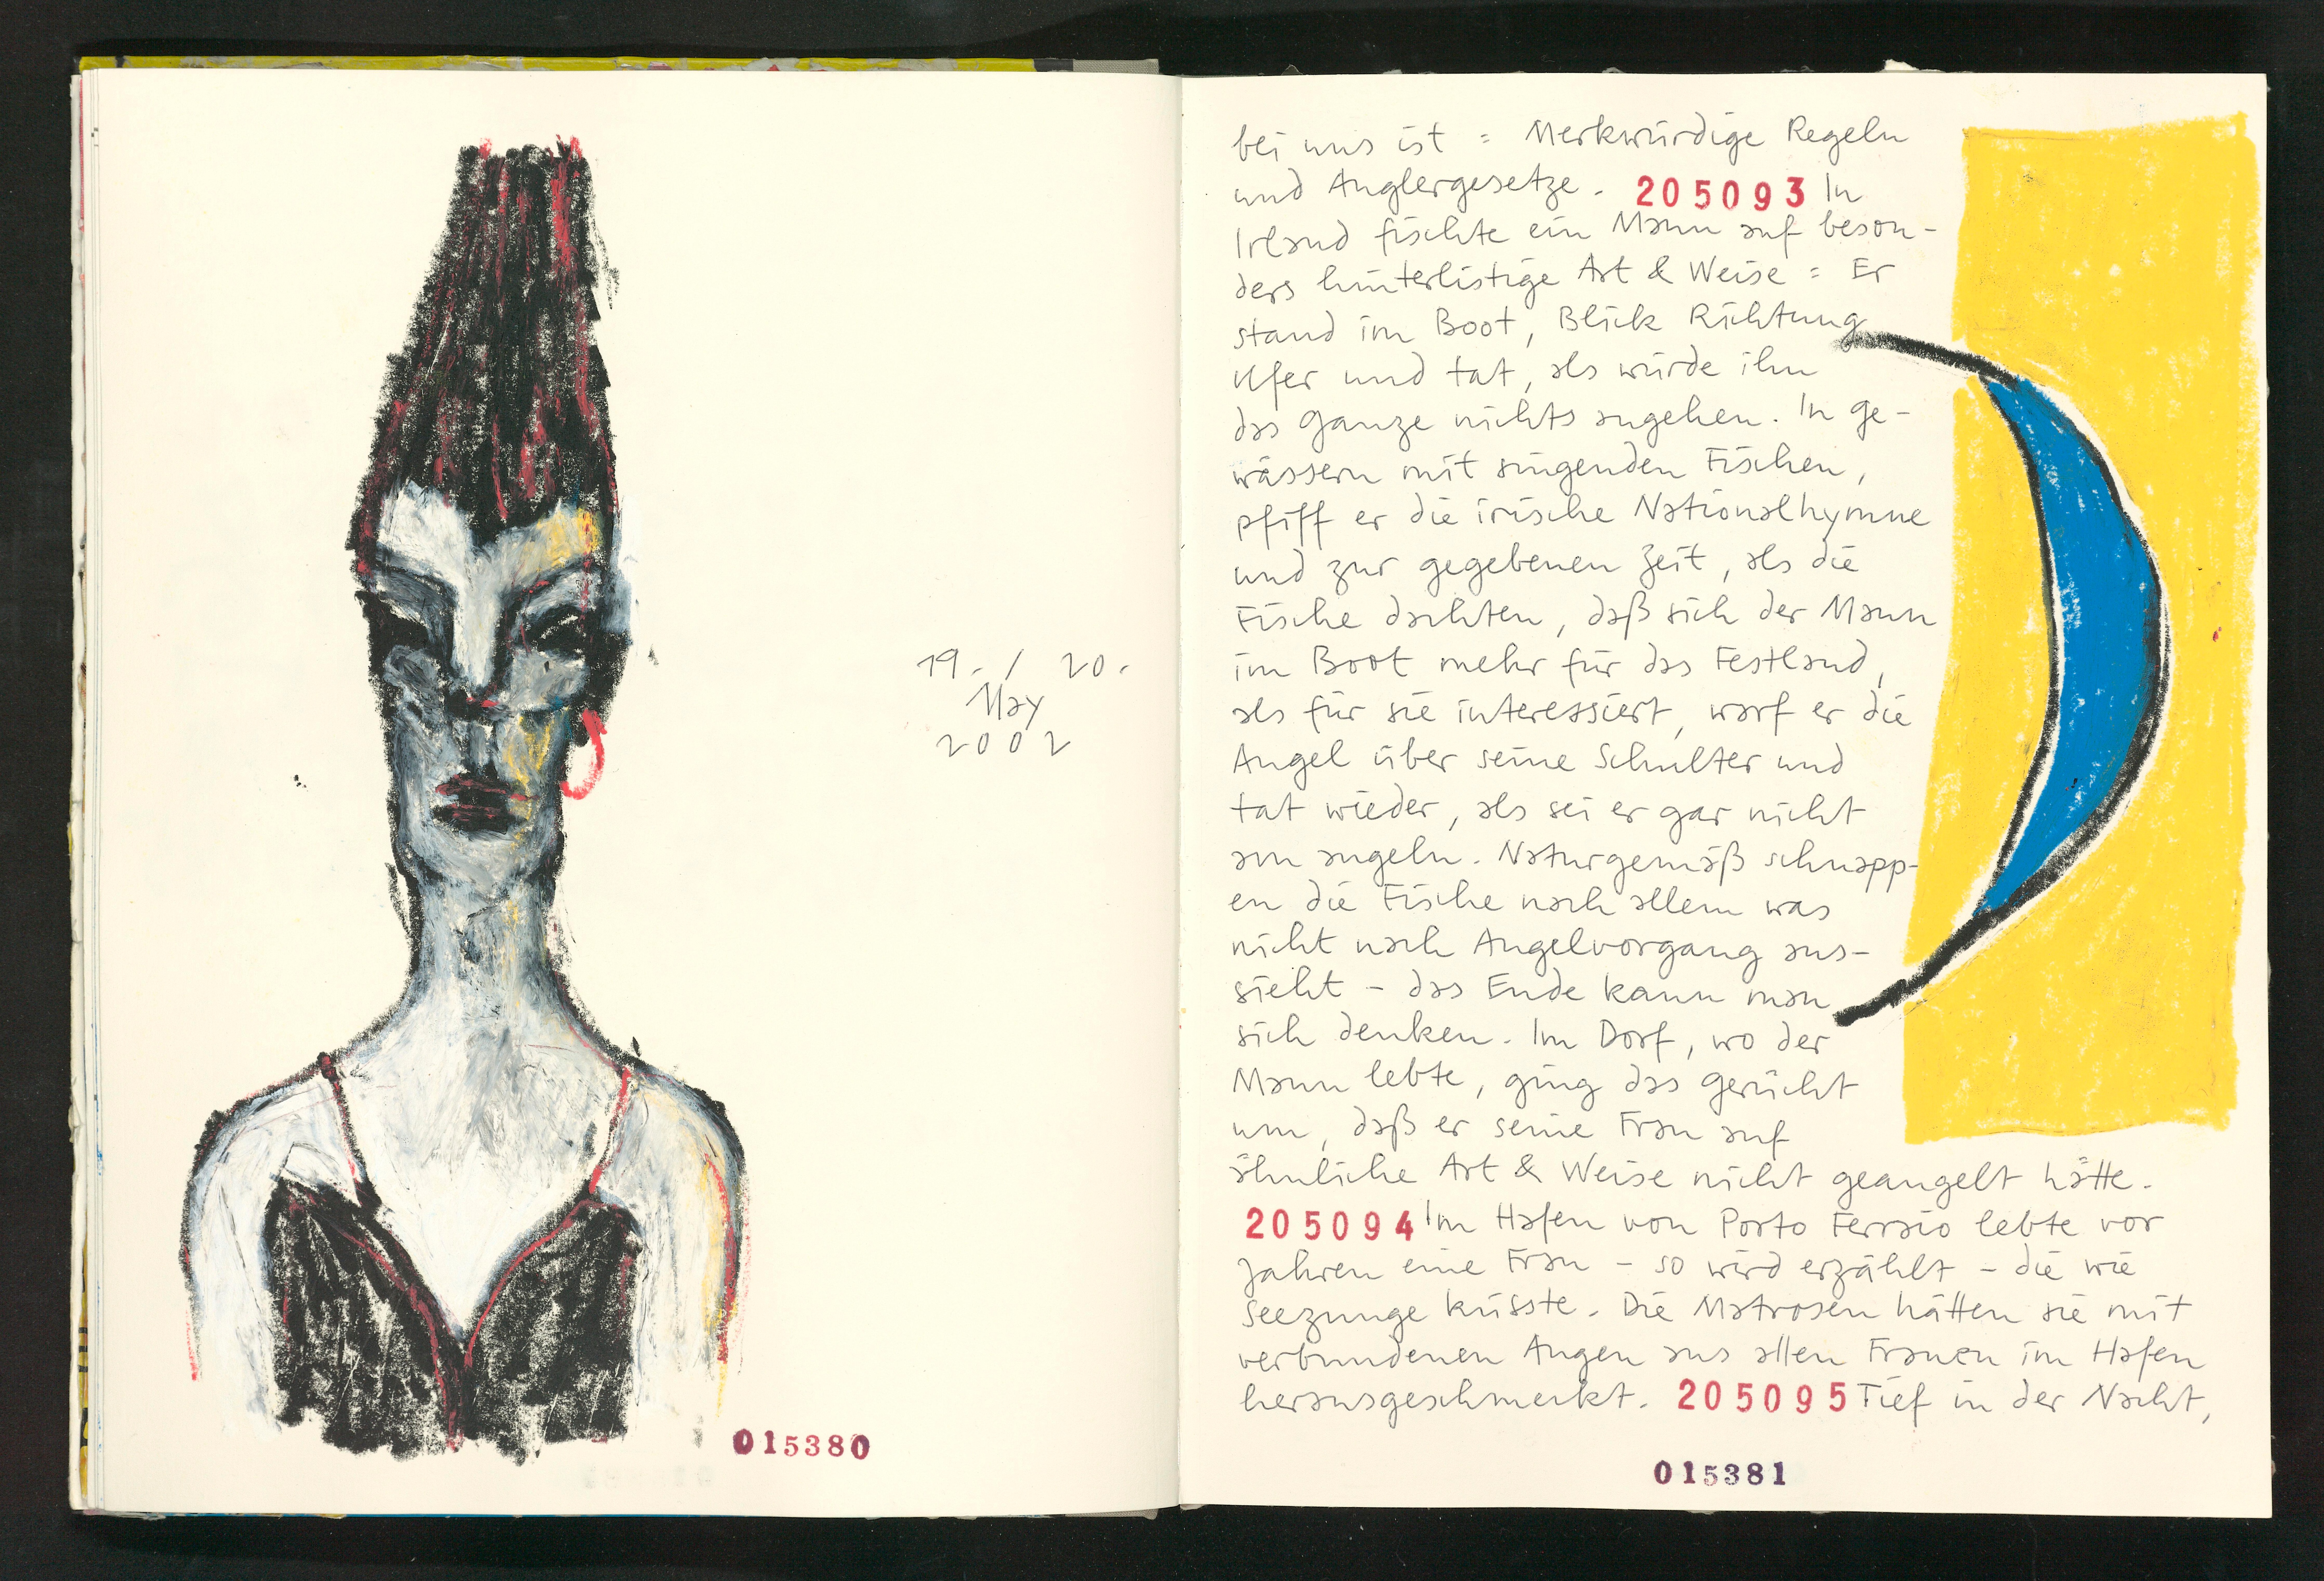 19. / 20.
May
2002
015380
bei uns ist = Merkwürdige Regeln
und Anglergesetze. 205093 In
Irland fischte ein Mann auf beson-
ders hinterlistige Art & Weise = Er
stand im Boot, Blick Richtung
Ufer und tat, als würde ihn
das Ganze nichts angehen. In Ge-
wässern mit singenden Fischen,
pfiff er die irische Nationalhymne
und zur gegebenen Zeit, als die
Fische dachten, daß sich der Mann
im Boot mehr für das Festland,
als für sie interessiert, warf er die
Angel über seine Schulter und
tat wieder, als sei er gar nicht
am angeln. Naturgemäß schnapp-
en die Fische nach allem was
nicht nach Angelvorgang aus-
sieht - das Ende kann man
sich denken. Im Dorf, wo der
Mann lebte, ging das Gerücht
um, daß er seine Frau auf
ähnliche Art & Weise nicht geangelt hätte.
205094 Im Hafen von Porto Ferraio lebte vor
Jahren eine Frau - so wird erzählt - die wie
Seezunge küsste. Die Matrosen hätten sie mit
verbundenen Augen aus allen Frauen im Hafen
herausgeschmeckt. 205095 Tief in der Nacht,
015381